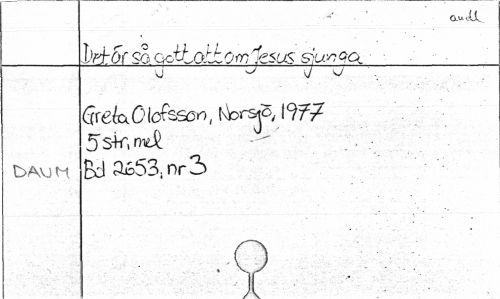 andl
Det är så gott att om Jesus sjunga
Greta Olofsson, Norsjö, 1977
5 str, mel
DAUM Bd 2653, nr 3